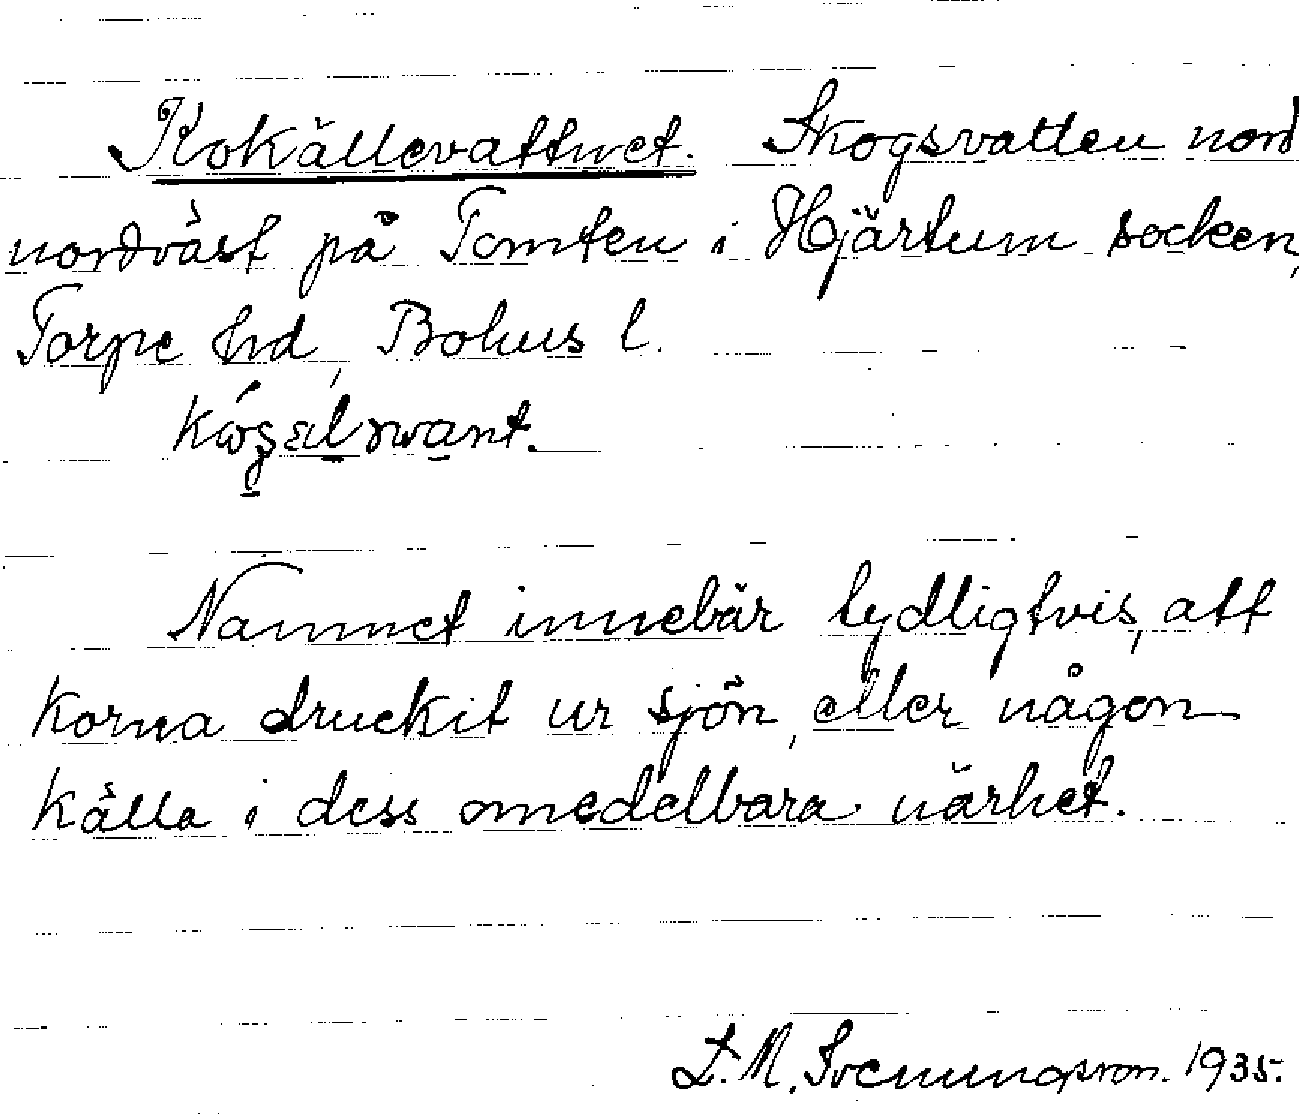 Kokällevattnet. Skogsvatten nord
nordväst på Tomten i Hjärtum socken,
Torpe hrd, Bohus l.
Namnet innebär tydligtvis, att
korna druckit ur sjön, eller någon
källa i dess omedelbara närhet.
L. M. Svenungsson. 1935.